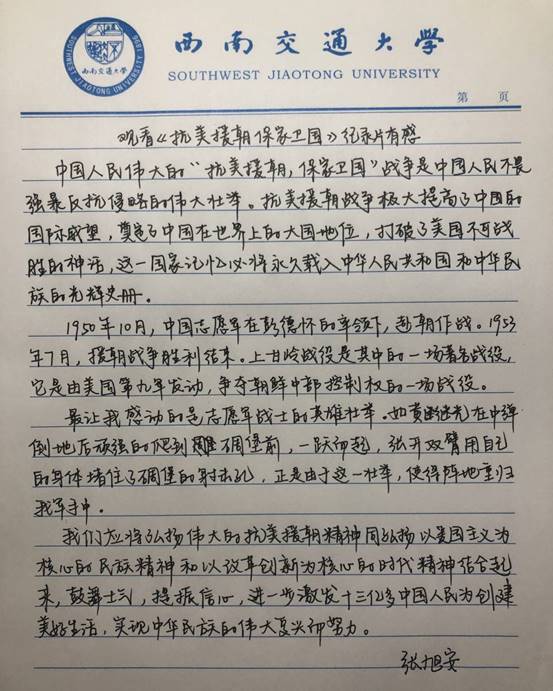 西南交通大学
SOUTHWEST JIAOTONG UNIVERSITY
第 页
观看《抗美援朝保家卫国》纪录片有感
中国人民伟大的“抗美援朝，保家卫国”战争是中国人民不畏
强暴反抗侵略的伟大壮举。抗美援朝战争极大提高了中国的
国际威望，奠定了中国在世界上的大国地位，打破了美国不可战
胜的神话，这一国家记忆必将永久载入中华人民共和国和中华民
族的光辉史册。
1950年10月，中国志愿军在彭德怀的率领下，赴朝作战。1953
年7月，援朝战争胜利结束。上甘岭战役是其中的一场著名战役，
它是由美国第九军发动，争夺朝鲜中部控制权的一场战役。
最让我感动的是志愿军战士的英雄壮举。如黄继光在中弹
倒地后顽强的爬到碉堡前，一跃而起，张开双臂用自己
的身体堵住了碉堡的射击孔，正是由于这一壮举，使得阵地重归
我军手中。
我们应将弘扬伟大的抗美援朝精神同弘扬以爱国主义为
核心的民族精神和以改革创新为核心的时代精神结合起
来，鼓舞士气，提振信心，进一步激发十三亿多中国人民为创建
美好生活，实现中华民族的伟大复兴而努力。
张旭安